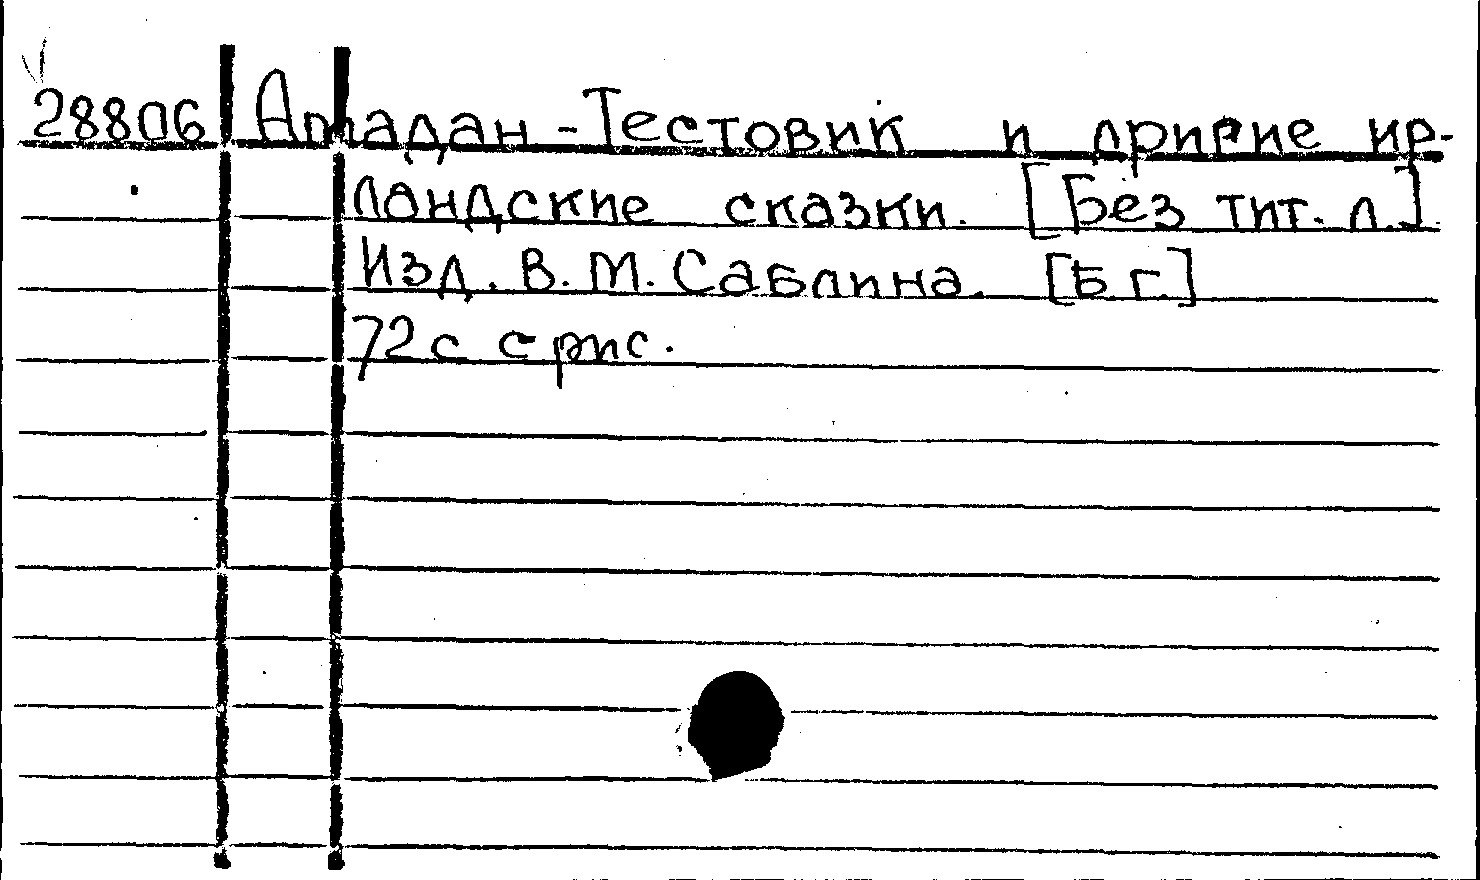 28806 Амадан-Тестовик и другие ир-
ландские сказки. [Без тит. л.].
Изд. В. М. Саблина. [Б г.]
72 с с рис.